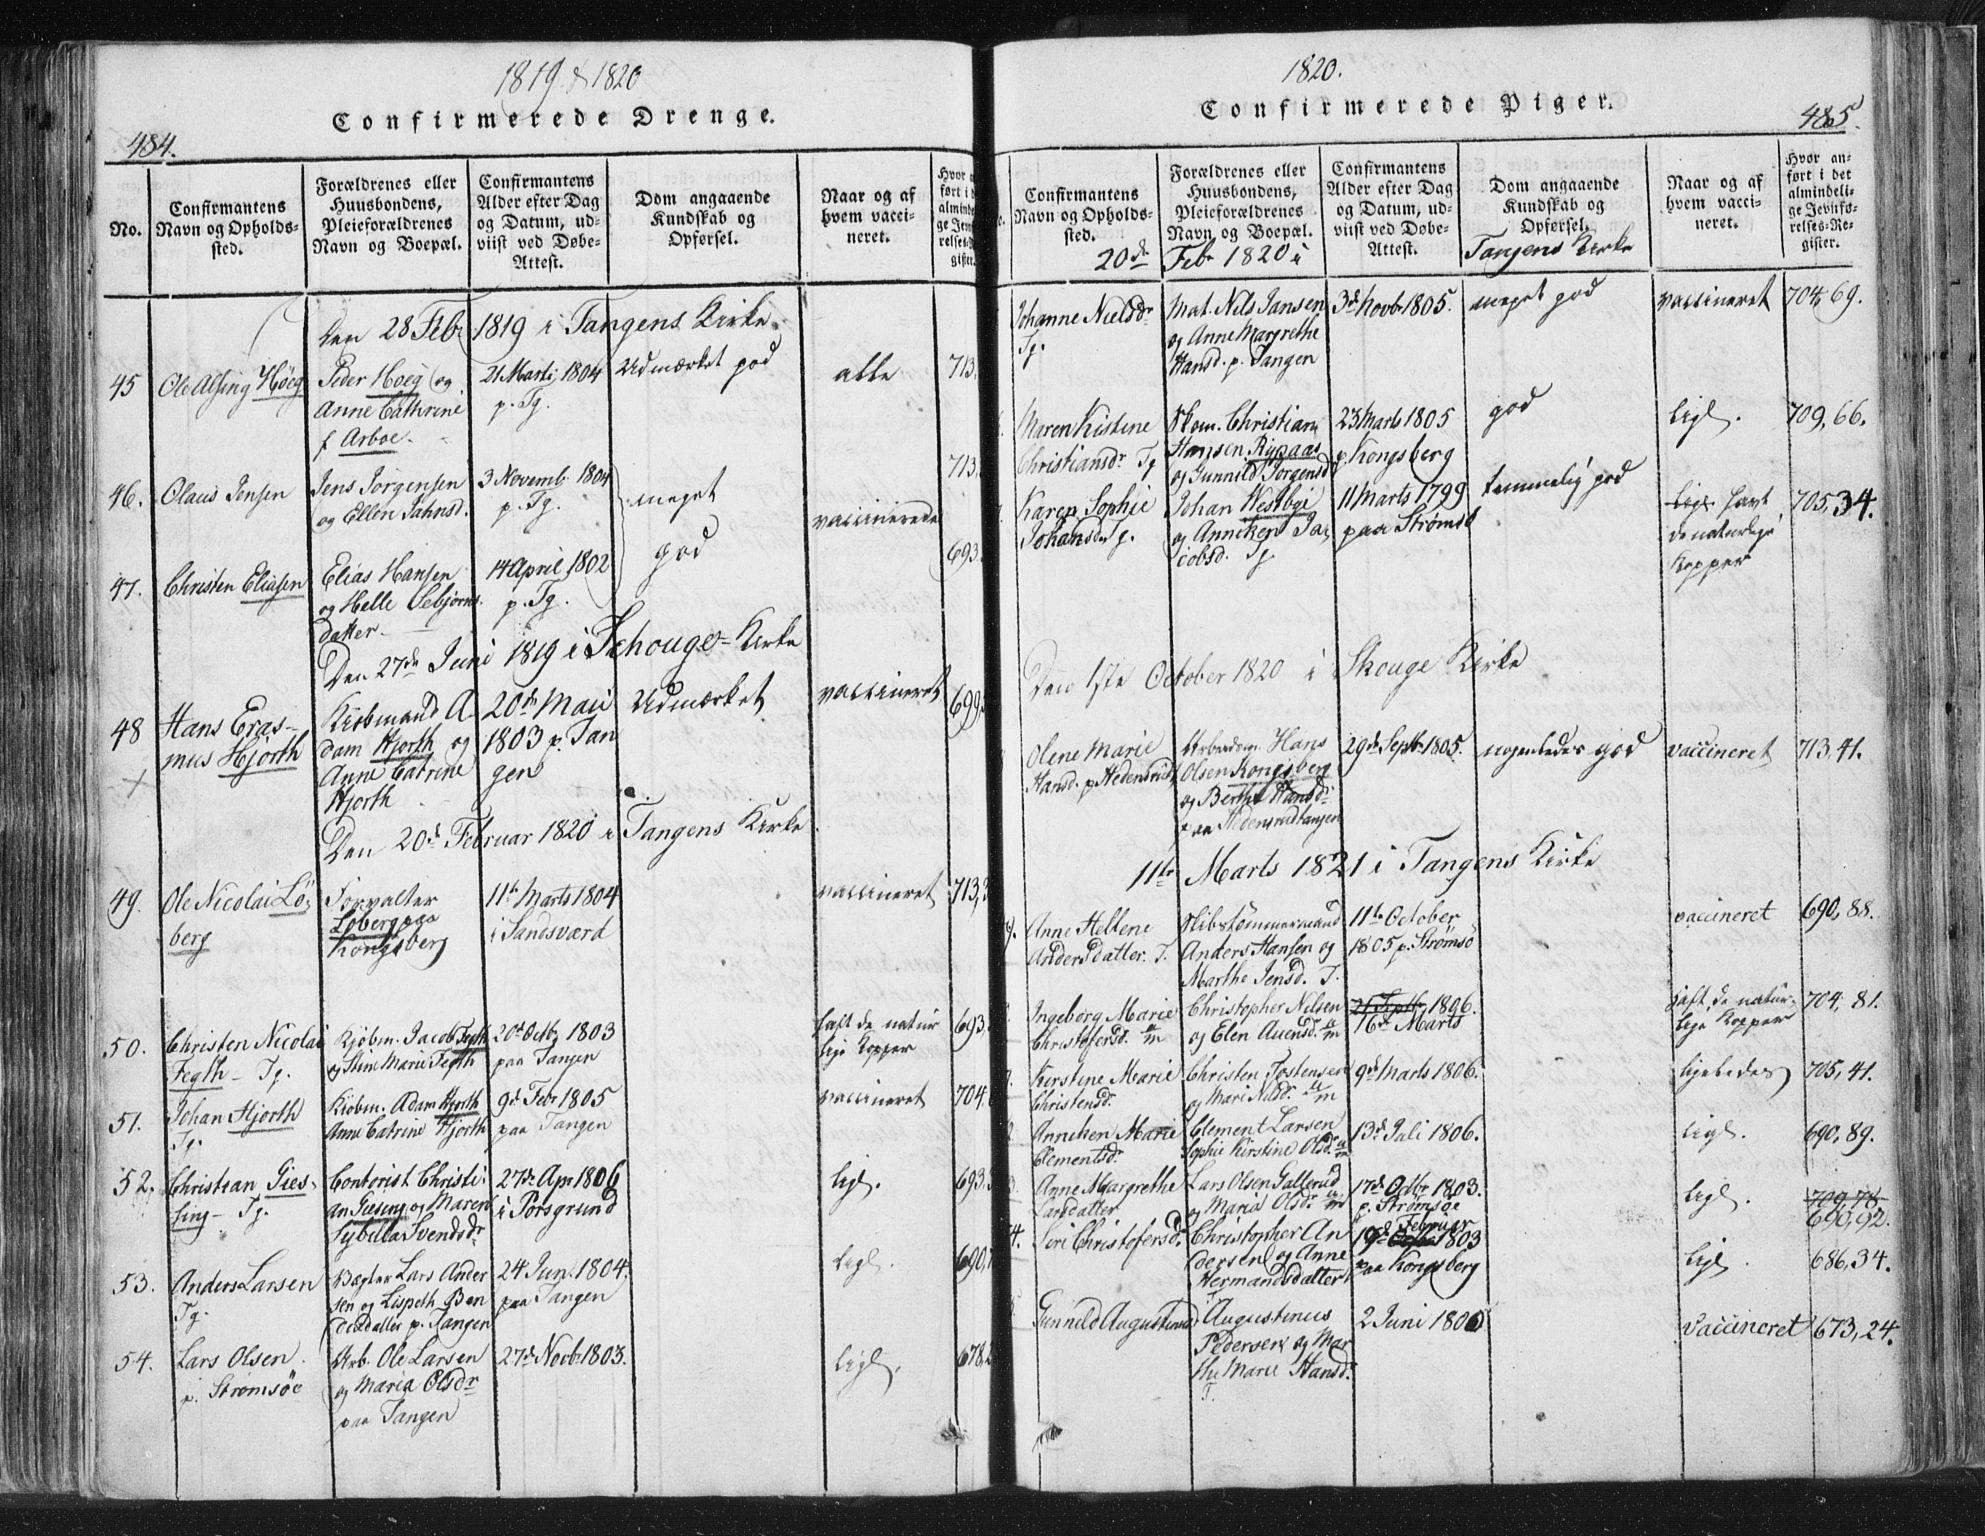 1819 & 1820
Confirmerede Drenge.
484.
No.
Confirmantens
Navn og Opholds-
sted.
Forældrenes eller
Huusbondens,
Pleieforældrenes
Navn og Boepæl.
Confirmantens
Alder efter Dag
og Datum, ud-
viist ved Døbe-
Attest.
Dom angaaende
Kundskab og
Opførsel.
Naar og af
hvem vacci-
neret.
Den 28 Febr 1819 i Tangens Kirke.
45
Ole Alsing Höeg
Peder Hoeg og
Anne Cathrine
f Arboe.
21 Martj 1804
p. Tg.
Udmærket god
alle
713,
46.
Olaus Jensen
Jens Jörgensen
og Ellen Jahnsd.
3 Novemb. 1804
p. Tg.
meget
god
vaccinerede
713,
47.
Christen Eliasen
Elias Hansen
og Helle Sebjörns
datter
14 April 1802
p. Tg.
693.
Den 27de Juni 1819 i Schouger-Kirke
48
Hans Eras-
mus Hjorth
Kiöbmand A-
dam Hjorth og
Anne Catrine
Hjorth
20de Maii
1803 p. Tan
gen
Udmærket
vaccineret
699,
Den 20de Februar 1820 i Tangens Kirke
49.
Ole Nicolai Lö-
berg
Forvalter
Löberg paa
Kongsberg
11te Marts 1804
i Sandsværd
vaccineret
713,3
50.
Christen Nicolai
Fegth - Tg.
Kjöbm. Jacob Fegth
og Stine Marie Fegth
20de Octb. 1803
paa Tangen
haft de natur
lige Kopper
693,
51.
Johan Hjorth
Tg.
Kiöbm. Adam Hjorth
Anne Catrine Hjorth
9de Febr 1805
paa Tangen
vaccineret
704,
52.
Christian Gies-
sing - Tg.
Contorist Christi-
an Giesing og Maren
Sybilla Svendsdr
27de Apr 1806
i Porsgrund
ligl.
693.
53.
Anders Larsen
Tg.
Bagter Lars Ander
sen og Lispeth Ben
dixdatter p. Tangen
24 Jun. 1804.
paa Tangen
ligl.
690,
54.
Lars Olsen
p. Strömsöe
Arb. Ole Larsen
og Maria Olsdr
paa Tangen
27de Novb. 1803.
ligl.
678,
1820.
Confirmerede Piger.
485.
Confirmantens
Navn og Opholds-
sted.
Forældrenes eller
Huusbondens,
Pleieforældrenes
Navn og Boepæl.
Confirmantens
Alder efter Dag
og Datum, ud-
viist ved Døbe-
Attest.
Dom angaaende
Kundskab og
Opførsel.
Naar og af
hvem vacci-
neret.
Hvor an-
ført i det
almindeli-
ge Jevnfø-
relses-Re-
gister.
20de Febr 1820 i Tangens Kirke
Johanne Nielsdr
Tg.
Mat. Nils Jansen
og Anne Margrethe
Hansd. p. Tangen
3de Novbr 1805.
meget god
vaccineret
704, 69.
Maren Kistine
Christiansdr Tg
Skom. Christian
Hansen Rypaas
og Gunnild Jörgensd
23 Marts 1805
p. Kongsberg
god
ligl.
709, 66.
Karen Sophie
Johansd Tg.
Johan Westbye
og Anneken Ja-
cobsd. Tg
11 Marts 1799
paa Strömsö
temmelig god
ligl. havt
de naturlige
Kopper
705, 34.
Den 1ste October 1820 i Skouge Kirke
Olene Marie
Hansd. p Hedensrud
Arbeidsm. Hans
Olsen Kongsberg
og Berthe Hansdr
paa Hedensrudtangen
29de Septbr 1805.
nogenledes god
vaccineret
713, 41.
11te Marts 1821 i Tangens Kirke
Anne Hellene
Andersdatter. T.
Skibstömmermand
Anders Hansen og
Marthe Jensd. T.
11te October
1805 p. Strömsö
vaccineret
690, 88.
Ingeborg Marie
Christofersd.
Christopher Nilsen
og Elen Auensd.
21 Septbr 1806.
16de Marts
haft de natur-
lige Kopper
704, 81.
Kirstine Marie
Christensd.
Christen Tostensen
og Mari Nilsd.
9de Marts 1806.
ligeledes
705, 41.
Anneken Marie
Clementsd.
Clement Larsen
Sophie Kirstine Olsd.
13de Juli 1806.
ligl.
690, 89.
Anne Margrethe
Larsdatter
Lars Olsen Gallerud
og Maria Olsdr
17de Octbr 1803.
p. Strömsöe
ligl.
709, 78
690, 92.
4.
Siri Christofersdr
Christopher An
dersen og Anne
Hermandsdatter
Februar
19de 1803
paa Kongsberg
ligl.
686, 34.
Gunneld Augustinusd
Augustinus
Pedersen og Mar
the Marie Hansd.
T.
2 Juni 1806
vaccineret
673, 24.